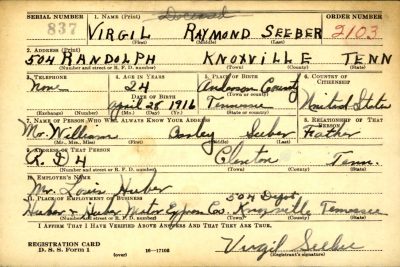 SERIAL NUMBER 1. NAME (Print) Deceased ORDER NUMBER
837 VIRGIL RAYMOND SEEBER 2103
(First) (Middle) (Last)
2. ADDRESS (Print)
504 RANDOLPH KNOXVILLE TENN
(Number and street or R. F. D. number) (Town) (County) (State)
3. TELEPHONE 4. AGE IN YEARS 5. PLACE OF BIRTH 6. COUNTRY OF CITIZENSHIP
None 24 Anderson County
DATE OF BIRTH (Town or county)
April 28 1916 Tennessee United States
(Exchange) (No.) (Mo.) (Day) (Yr.) (State or country)
7. NAME OF PERSON WHO WILL ALWAYS KNOW YOUR ADDRESS 8. RELATIONSHIP OF THAT PERSON
Mr. William Seeber Father
(Mr., Mrs., Miss) (First) (Middle) (Last)
9. ADDRESS OF THAT PERSON
R. D 4 Clinton Tenn.
(Number and street or R. F. D. number) (Town) (County) (State)
10. EMPLOYER'S NAME
Mr. Louis Huber
11. PLACE OF EMPLOYMENT OR BUSINESS 504 Depot
Huber & Huber Motor Express Co. Knoxville Tennessee
(Number and street or R. F. D. number) (Town) (County) (State)
I AFFIRM THAT I HAVE VERIFIED ABOVE ANSWERS AND THAT THEY ARE TRUE.
REGISTRATION CARD
D. S. S. Form 1 (over) 16—17105 Virgil Seeber
(Registrant's signature)